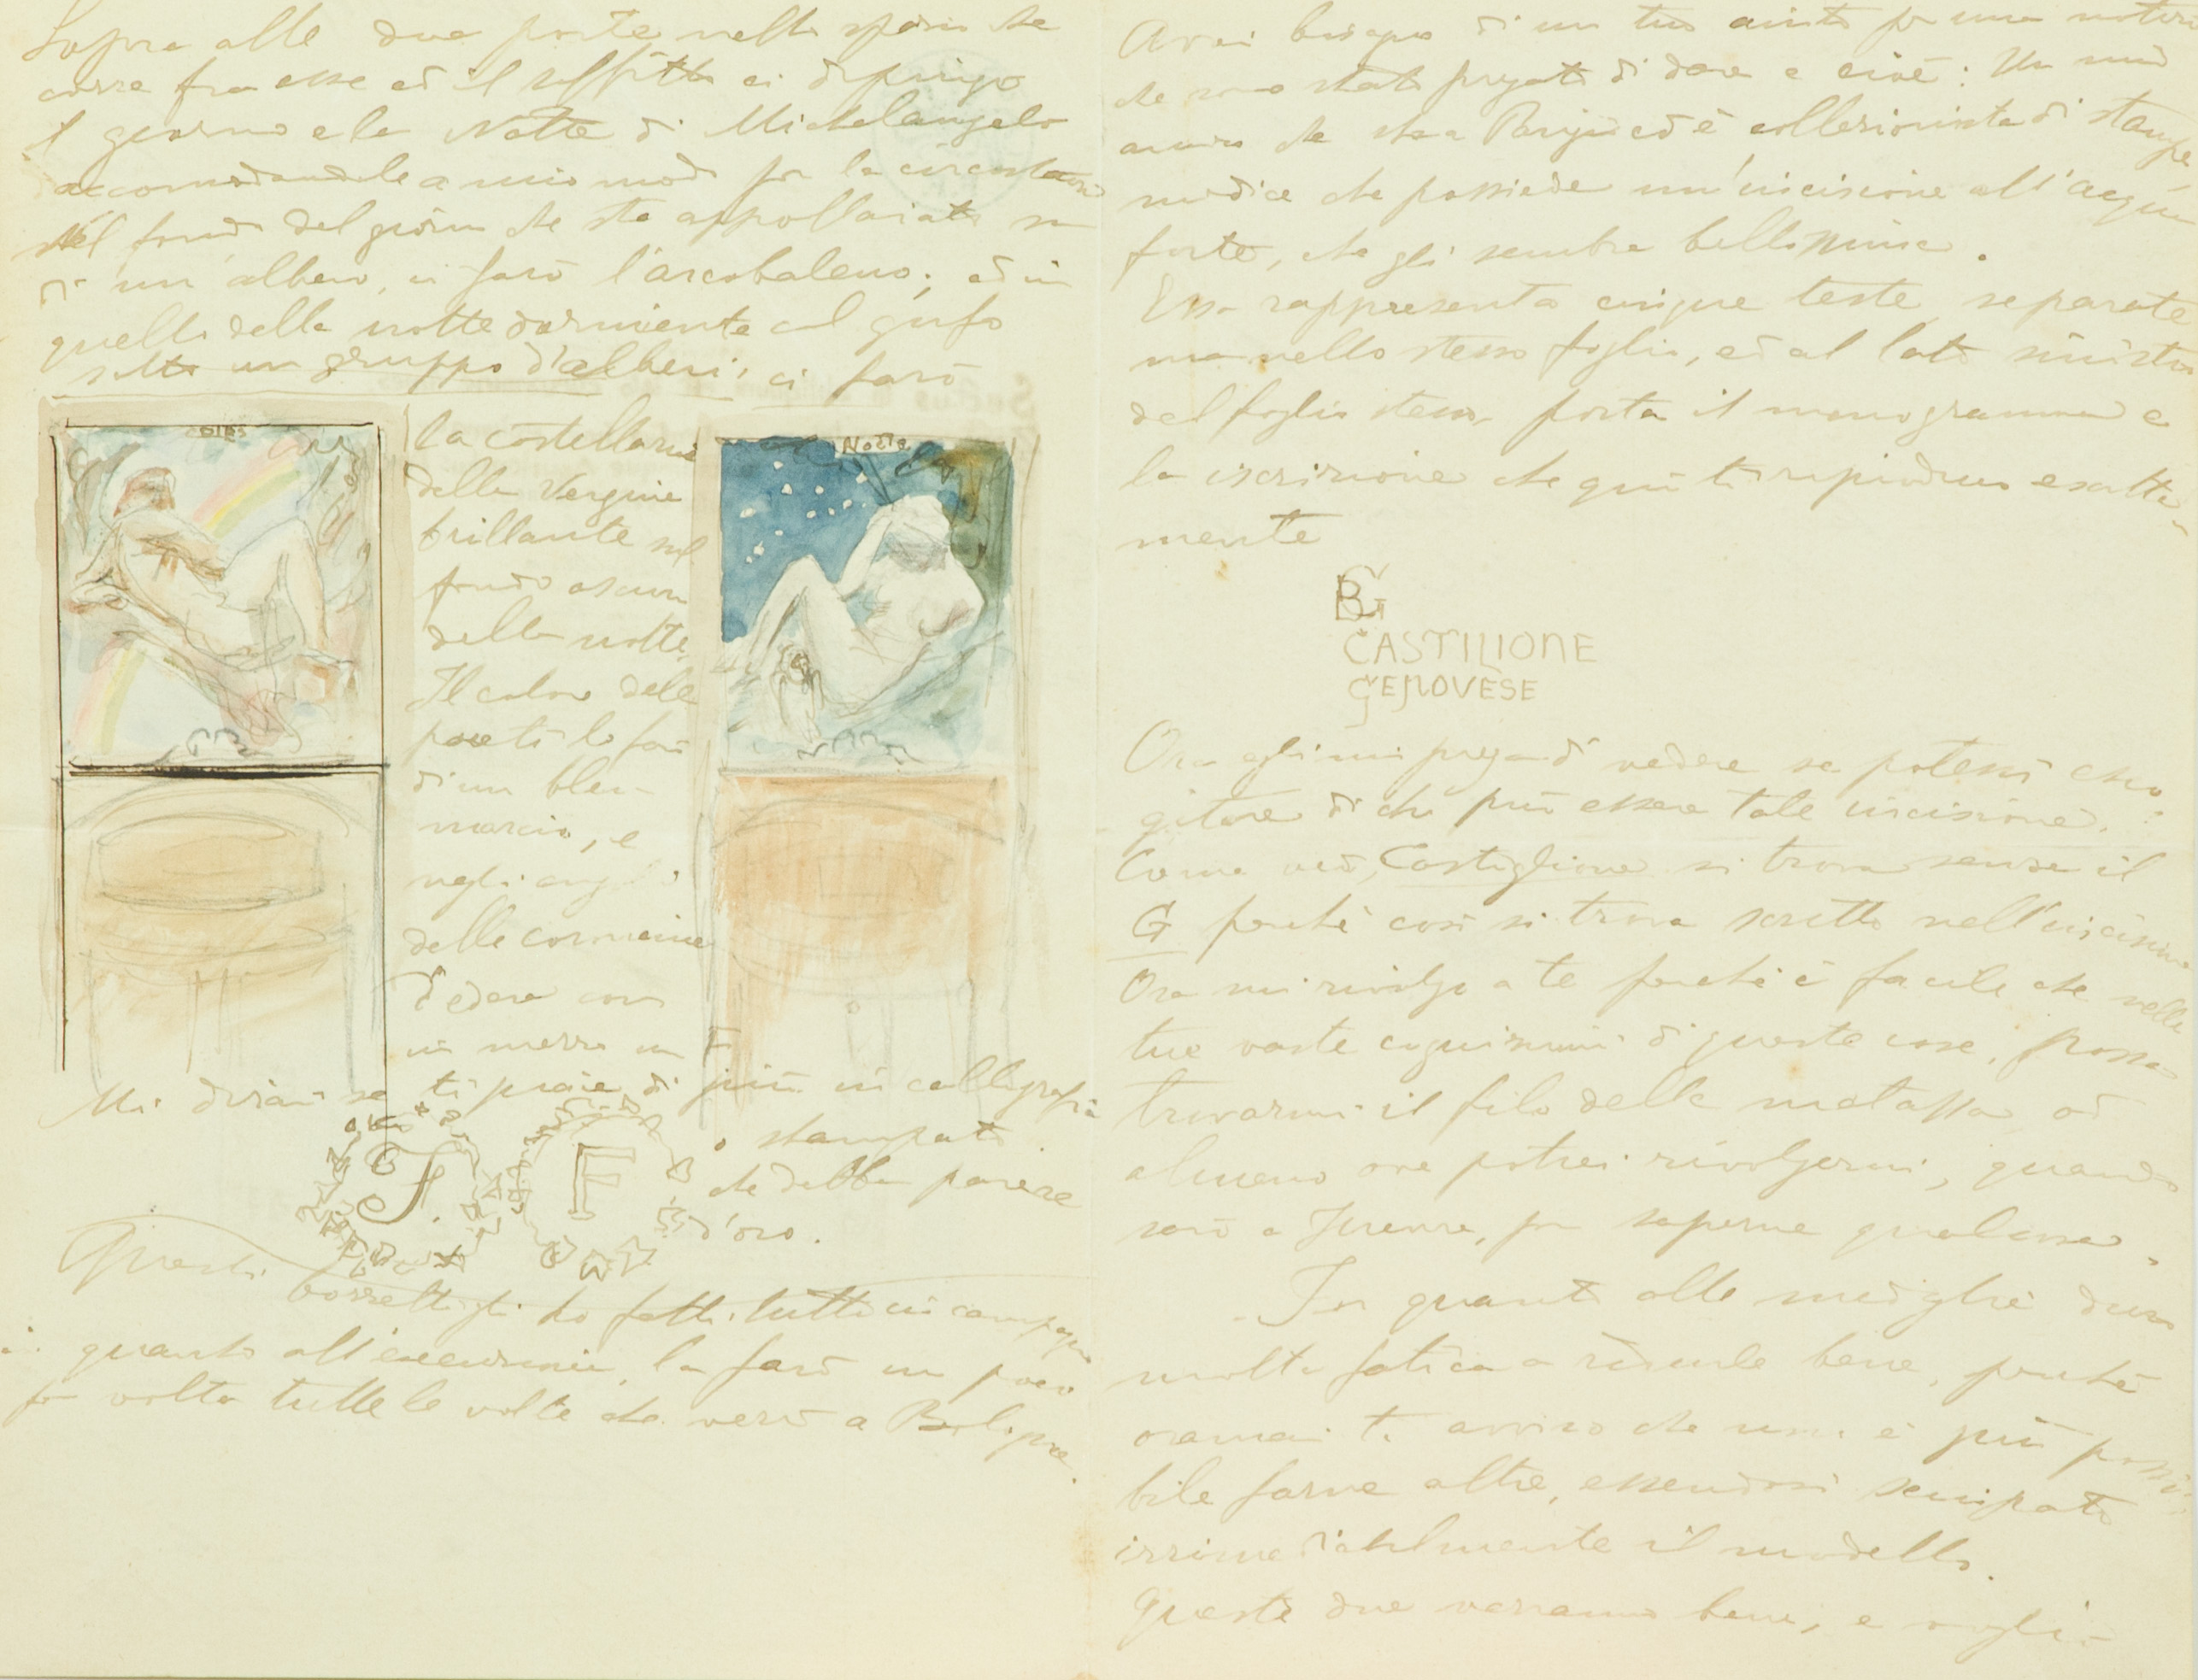 Sopra alle due porte nello spazio che
corre fra esse ed il soffitto ci dipingo
il giorno e la Notte di Michelangelo
accomodandole a mio modo per la circostanza
Nel fondo del giorno che sta appollaiato su
di un albero, ci farò l'arcobaleno; ed in
quello della notte dormiente col gufo
sotto un gruppo d'alberi, ci farò
la costellazione
della Vergine
brillante sul
fondo oscuro
della notte.
Il colore delle
pareti lo farò
di un bleu
marcio, e
negli angoli
delle cornicine
d'edera con
in mezzo un F
Notte
Mi dirai se ti piace di più in calligrafia
o stampato
che debba parere
d'oro.
F. F
Questi bozzetti gli ho fatti tutti in campagna
in quanto all'esecuzione, la farò un poco
per volta tutte le volte che verrò a Bologna.
Avrei bisogno di un tuo aiuto per una notizia
che sono stato pregato di dare e cioè: Un mio
amico che sta a Parigi ed è collezionista di stampe
che possiede un'incisione all'acqua
forte, che gli sembra bellissima.
Essa rappresenta cinque teste separate
ma nello stesso foglio, ed al lato sinistro
del foglio stesso porta il monogramma e
la iscrizione che qui ti riproduco esatta-
mente
GB
CASTILIONE
GENOVESE
Ora egli mi prega di vedere se potessi esco-
gitare di chi può essere tale incisione.
Come vedi, Castiglione si trova senza il
G perché così si trova scritto nell'incisione
Ora mi rivolgo a te perché è facile che nelle
tue vaste cognizioni di queste cose, possa
trovarmi il filo della matassa od
almeno ove potrei rivolgermi, quando
sarò a Firenze, per saperne qualcosa.
In quanto alle duro
molta fatica a bene, perché
oramai ti avviso che non è più possi-
bile farne altre, essendosi sciupato
irrimediabilmente il modello.
Queste due verranno bene, e voglio